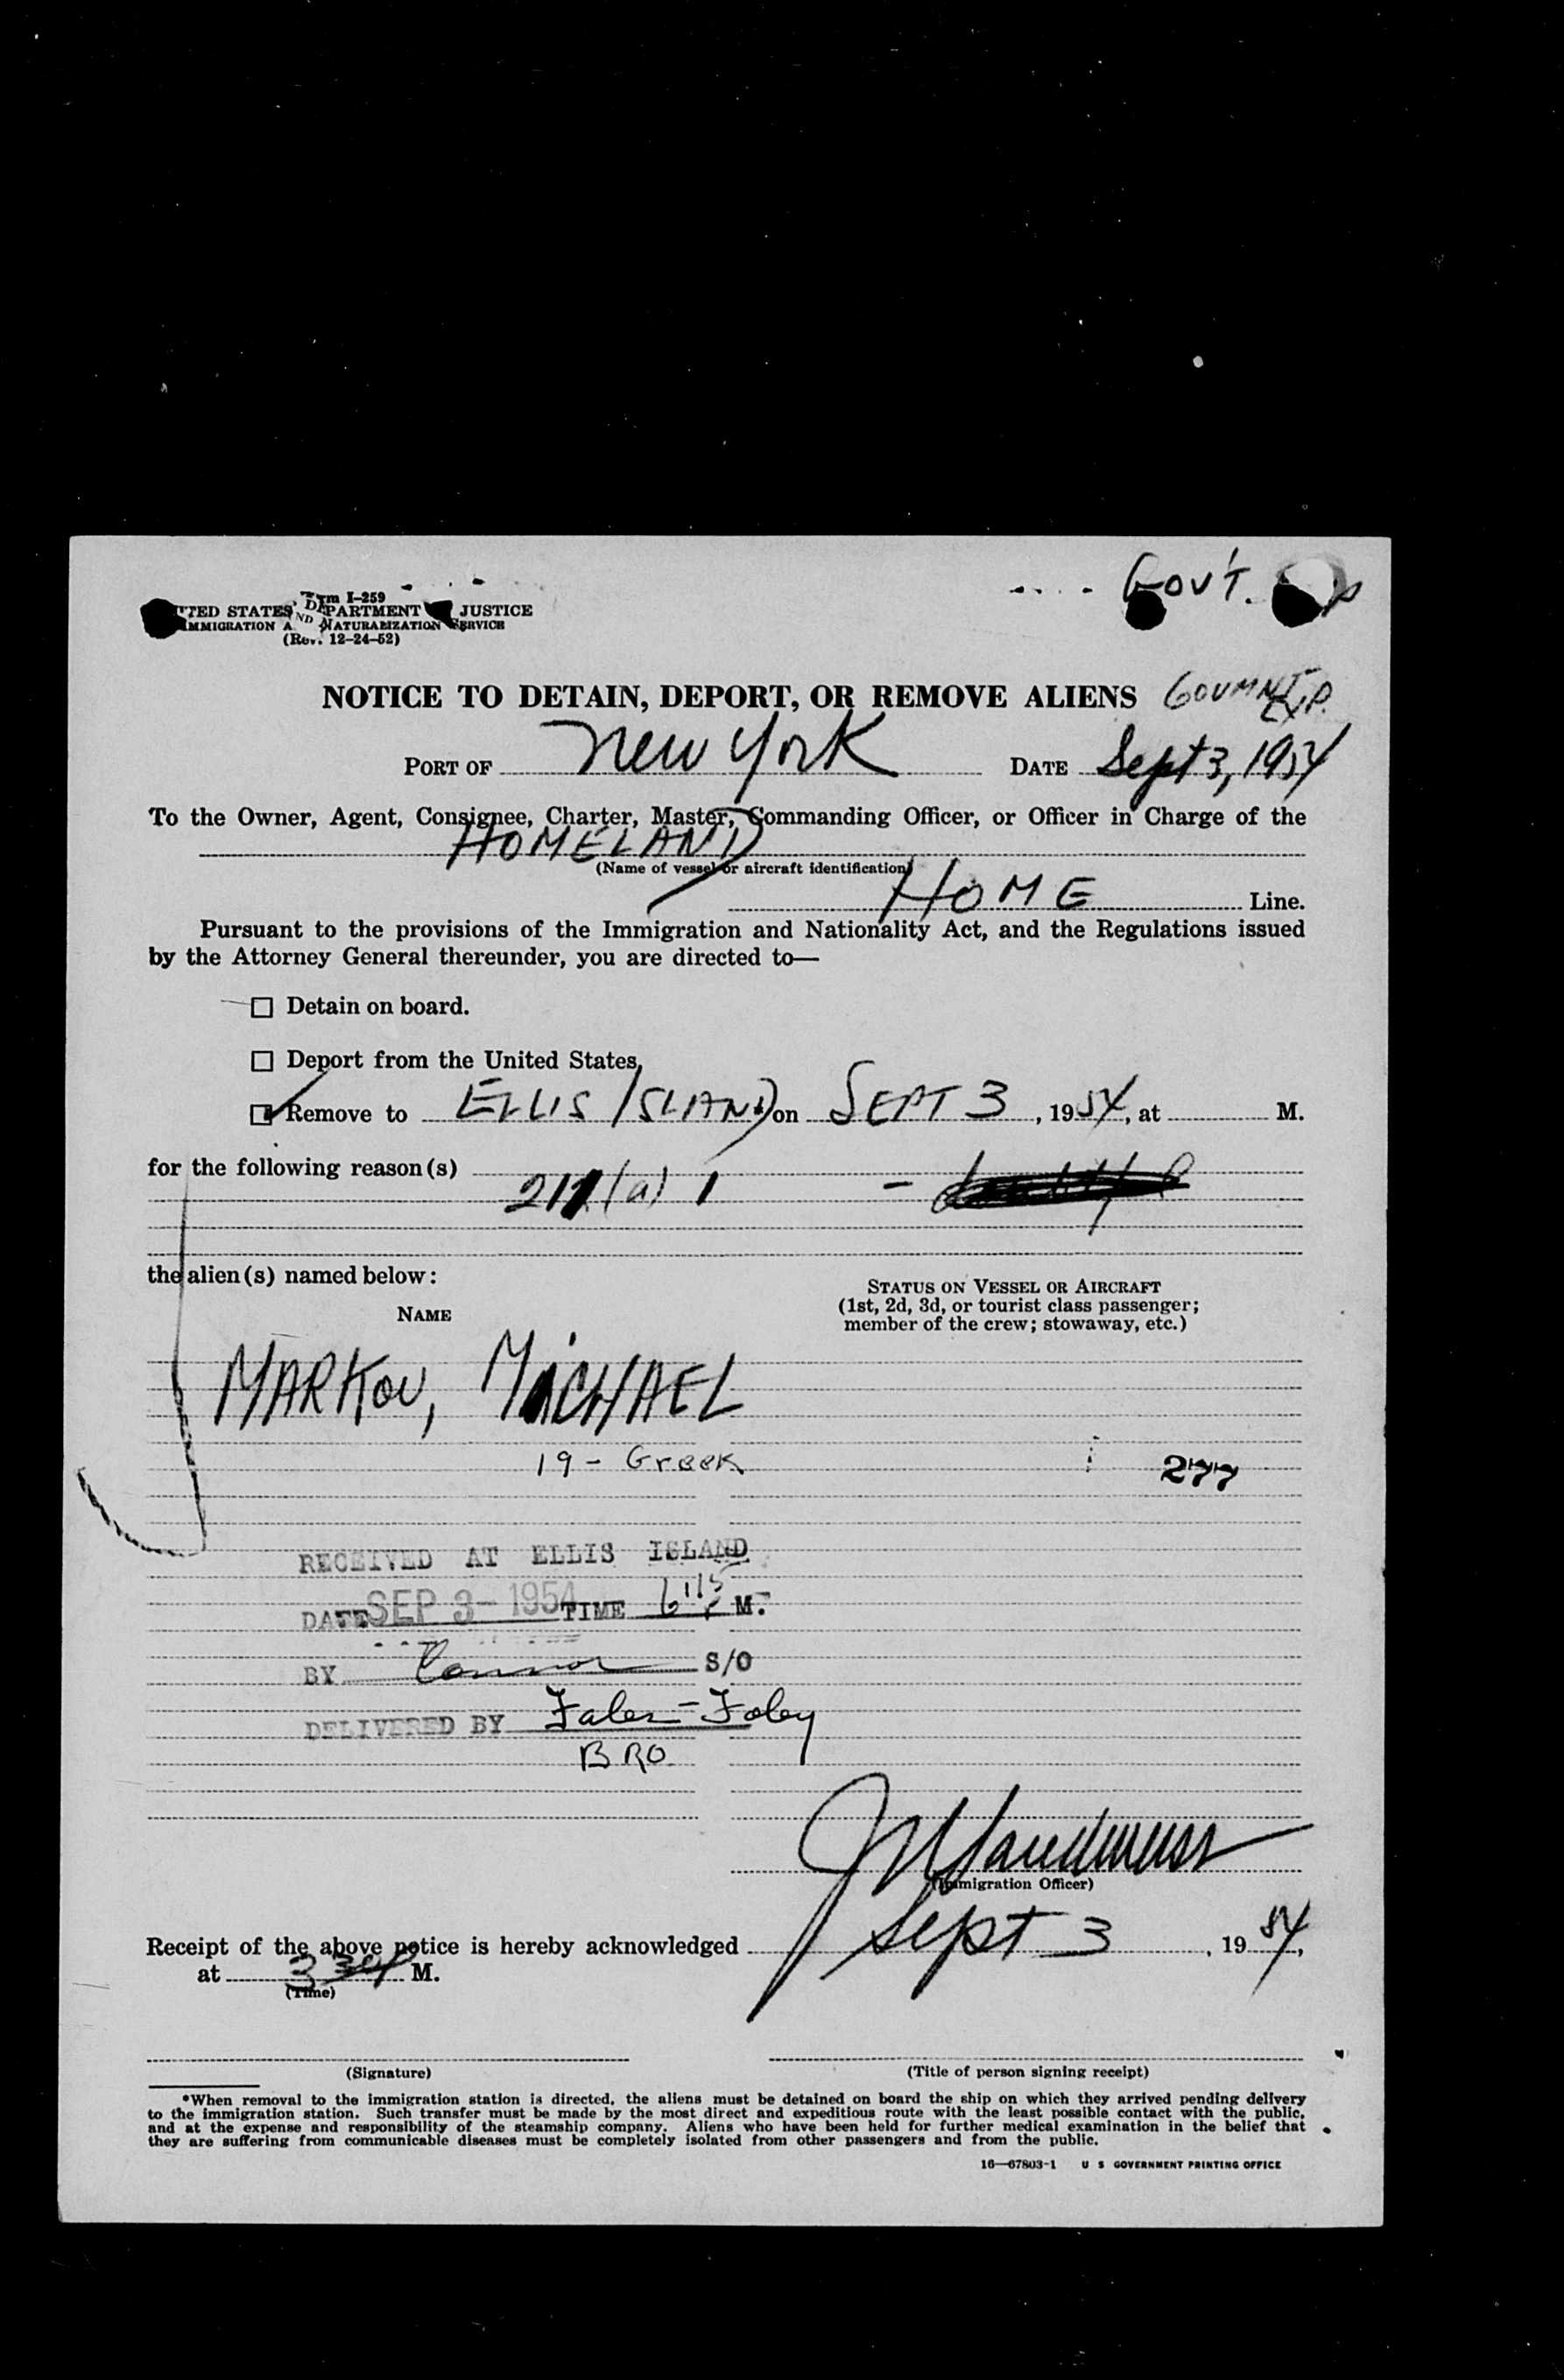 Form I-259
UNITED STATES DEPARTMENT OF JUSTICE
IMMIGRATION AND NATURALIZATION SERVICE
(Rev. 12-24-52)
GOV'T.
NOTICE TO DETAIN, DEPORT, OR REMOVE ALIENS
GOVMNT EXP.
PORT OF New York DATE Sept 3, 1954
To the Owner, Agent, Consignee, Charter, Master, Commanding Officer, or Officer in Charge of the
HOMELAND
(Name of vessel or aircraft identification)
HOME Line.
Pursuant to the provisions of the Immigration and Nationality Act, and the Regulations issued
by the Attorney General thereunder, you are directed to—
☐ Detain on board.
☐ Deport from the United States.
☑ Remove to ELLIS ISLAND on SEPT 3, 1954, at M.
for the following reason(s)
(a) 1 -
the alien(s) named below:
NAME
STATUS ON VESSEL OR AIRCRAFT
(1st, 2d, 3d, or tourist class passenger;
member of the crew; stowaway, etc.)
MARKOU, MICHAEL
19 - Greek
277
RECEIVED AT ELLIS ISLAND
DATE SEP 3 - 1954 TIME 6:15 P M.
BY Connor S/O
DELIVERED BY Faler - Foley
BRO
(Immigration Officer)
Receipt of the above notice is hereby acknowledged Sept 3, 1954,
at M.
(Time)
(Signature)
(Title of person signing receipt)
*When removal to the immigration station is directed, the aliens must be detained on board the ship on which they arrived pending delivery
to the immigration station. Such transfer must be made by the most direct and expeditious route with the least possible contact with the public,
and at the expense and responsibility of the steamship company. Aliens who have been held for further medical examination in the belief that
they are suffering from communicable diseases must be completely isolated from other passengers and from the public.
16—67803-1 U S GOVERNMENT PRINTING OFFICE